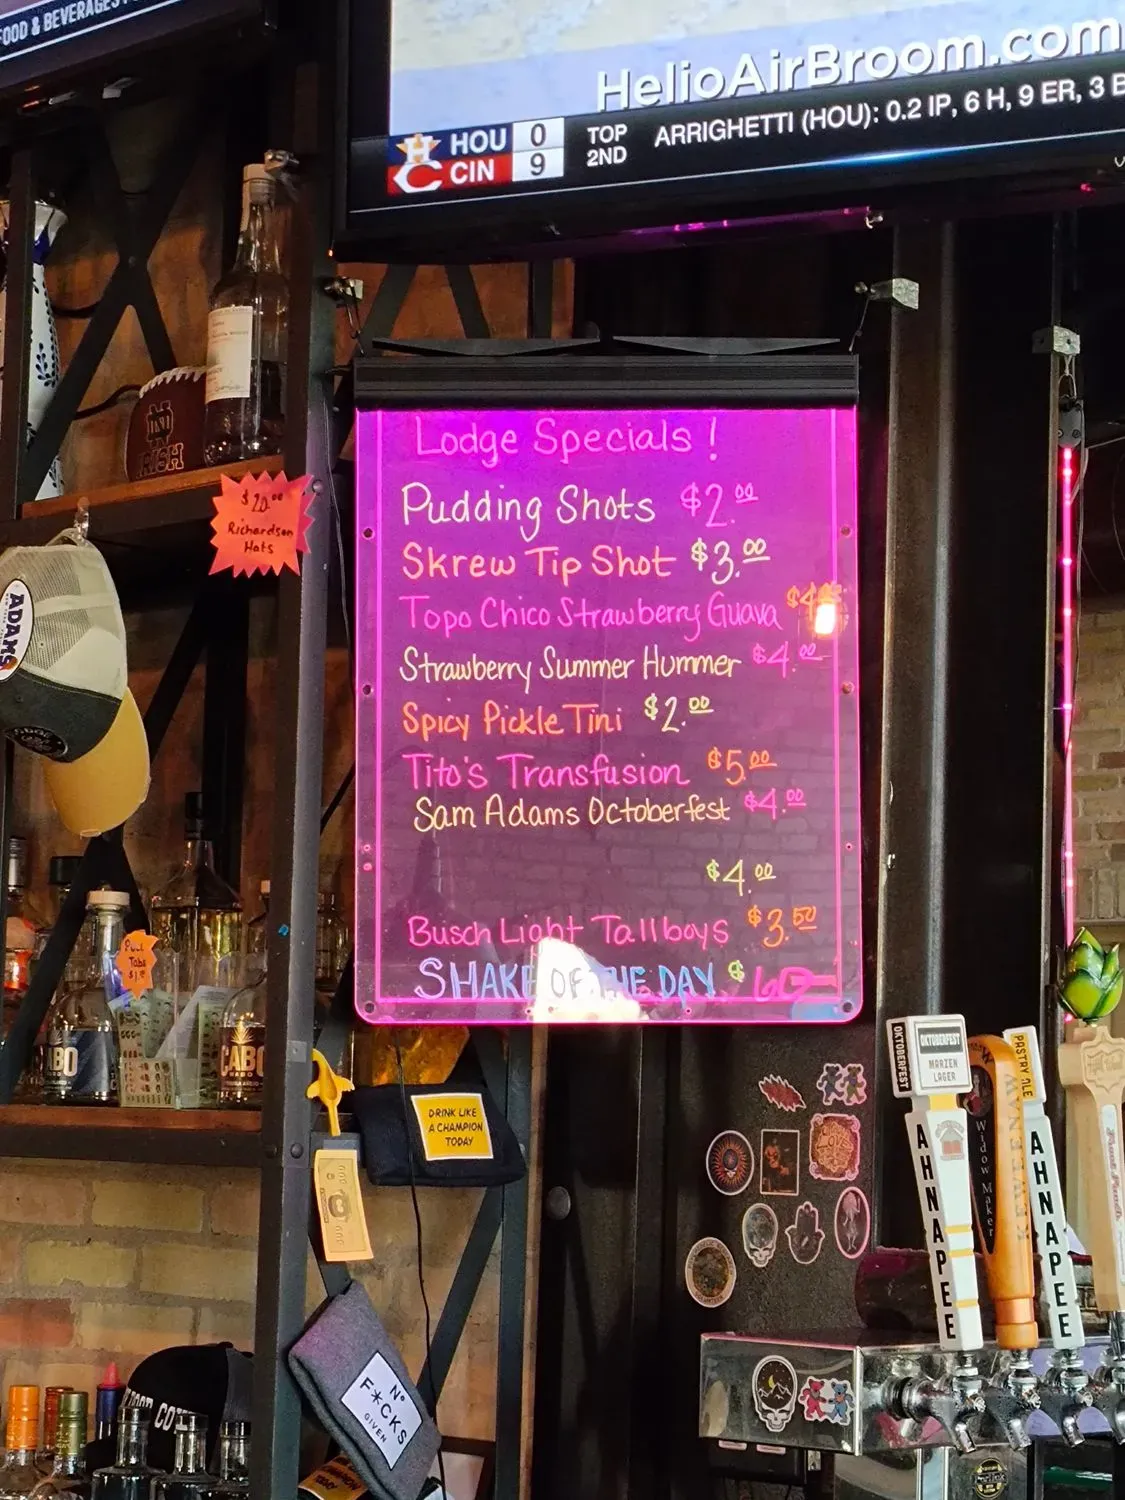 FOOD & BEVERAGES
HelioAirBroom.com
HOU 0
CIN 9
TOP
2ND
ARRIGHETTI (HOU): 0.2 IP, 6 H, 9 ER, 3 B
IRISH
$20.00
Richardson
Hats
ADAMS
Lodge Specials!
Pudding Shots $2.00
Skrew Tip Shot $3.00
Topo Chico Strawberry Guava $4
Strawberry Summer Hummer $4.00
Spicy Pickle Tini $2.00
Tito's Transfusion $5.00
Sam Adams Octoberfest $4.00
$4.00
Busch Light Tallboys $3.50
SHAKE OF THE DAY $
Pull
Tabs
CABO
CABO
DRINK LIKE
A CHAMPION
TODAY
No
F*CKS
GIVEN
OKTOBERFEST
OKTOBERFEST
MARZEN
LAGER
AHNAPEE
Widow Maker
KEWEENAW
PASTRY ALE
AHNAPEE